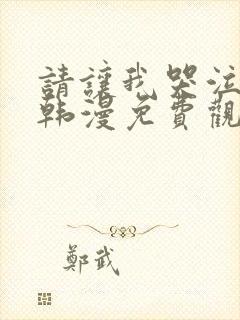 請讓我哭泣
韩漫免費觀
鄭武